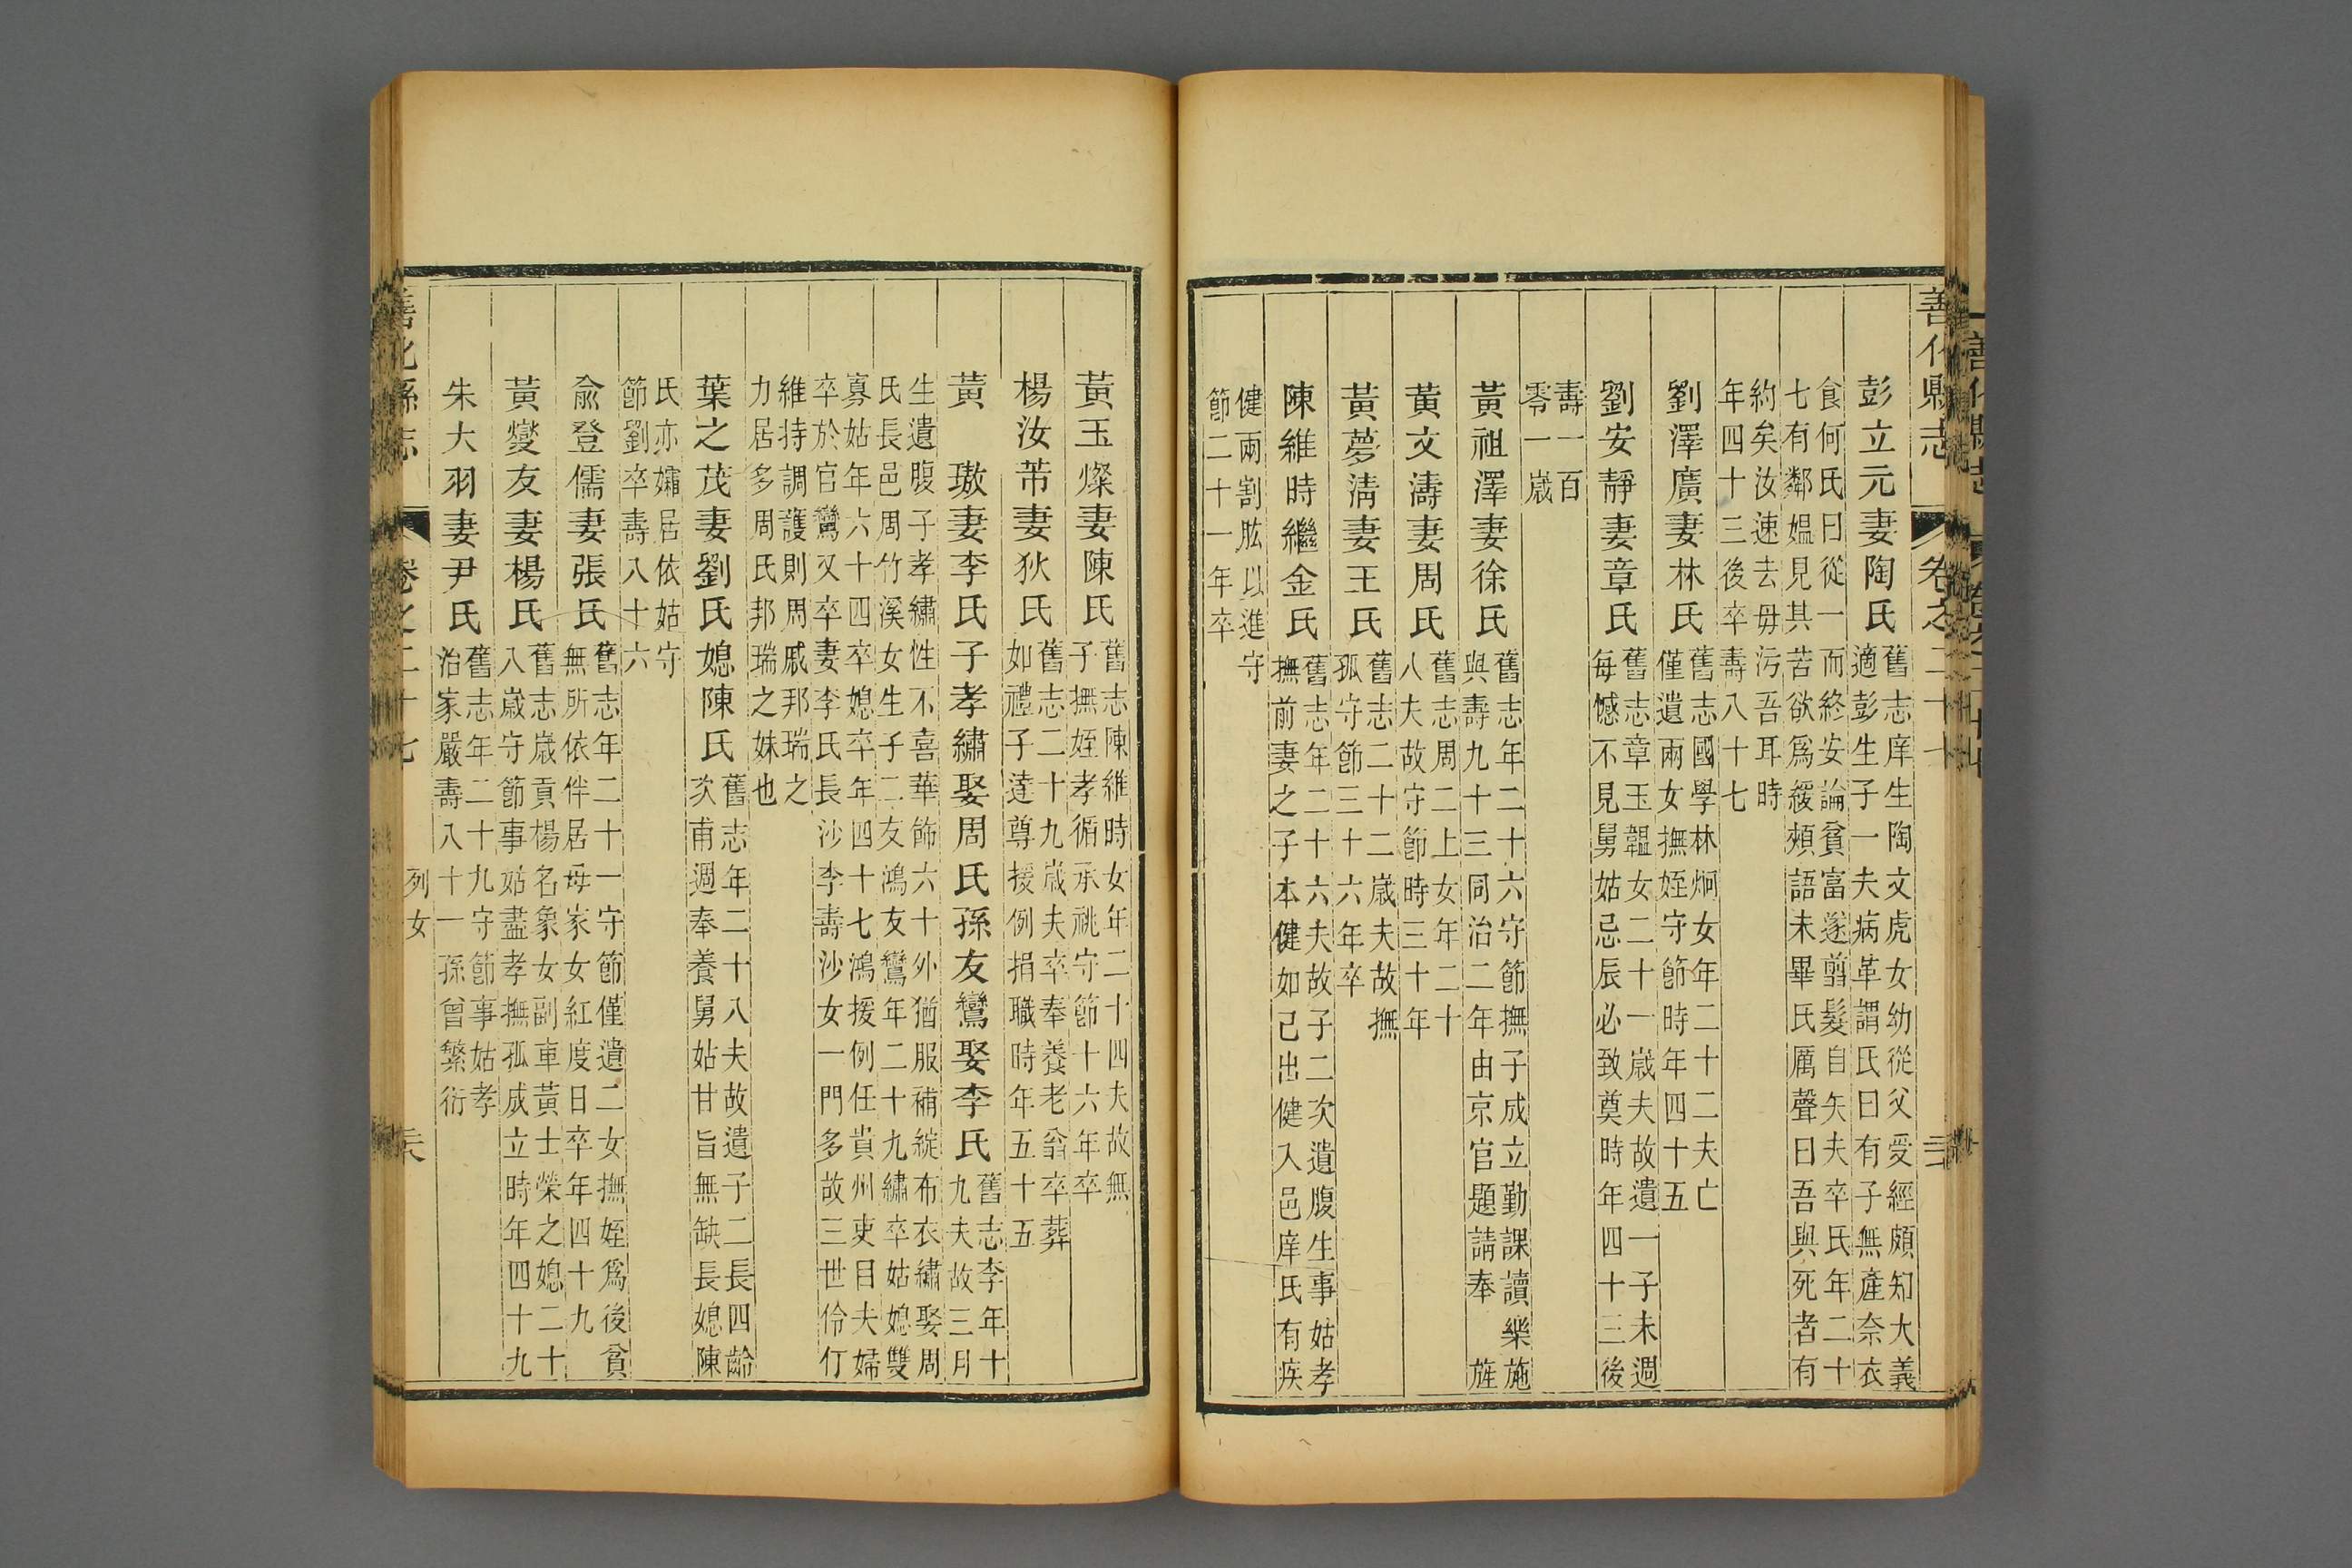 善化縣志
卷之二十七
彭立元妻陶氏
舊志庠生陶文虎女幼從父受經頗知大義
適彭生子一夫病革謂氏曰有子無產奈衣
食何氏曰從一而終安論貧富遂翦髮自矢夫卒氏年二十
七有鄰媼見其苦欲爲緩頰語未畢氏厲聲曰吾與死者有
約矣汝速去毋污吾耳時
年四十三後卒壽八十七
劉澤廣妻林氏
舊志國學林炯女年二十二夫亡
僅遺兩女撫姪守節時年四十五
劉安靜妻章氏
舊志章玉韞女二十一歲夫故遺一子未週
每憾不見舅姑忌辰必致奠時年四十三後
壽一百
零一歲
黃祖澤妻徐氏
舊志年二十六守節撫子成立勤課讀樂施
與壽九十三同治二年由京官題請奉 旌
黃文濤妻周氏
舊志周二上女年二十
八夫故守節時三十年
黃夢淸妻王氏
舊志二十二歲夫故撫
孤守節三十六年卒
陳維時繼金氏
舊志年二十六夫故子二次遺腹生事姑孝
撫前妻之子本健如己出健入邑庠氏有疾
健兩割肱以進守
節二十一年卒
黃玉燦妻陳氏
舊志陳維時女年二十四夫故無
子撫姪孝循承祧守節十六年卒
楊汝芾妻狄氏
舊志二十九歲夫卒奉養老翁卒葬
如禮子達尊援例捐職時年五十五
黃 璈妻李氏子孝繡娶周氏孫友鸞娶李氏
舊志李年十
九夫故三月
生遺腹子孝繡性不喜華飾六十外猶服補綻布衣繡娶周
氏長邑周竹溪女生子二友鴻友鸞年二十九繡卒姑媳雙
寡姑年六十四卒媳卒年四十七鴻援例任貴州吏目夫婦
卒於官鸞又卒妻李氏長沙李壽沙女一門多故三世伶仃
維持調護則周戚邦瑞之
力居多周氏邦瑞之妹也
葉之茂妻劉氏媳陳氏
舊志年二十八夫故遺子二長四齡
次甫週奉養舅姑甘旨無缺長媳陳
氏亦孀居依姑守
節劉卒壽八十六
兪登儒妻張氏
舊志年二十一守節僅遺二女撫姪爲後貧
無所依伴居母家女紅度日卒年四十九
黃燮友妻楊氏
舊志歲貢楊名象女副車黃士榮之媳二十
八歲守節事姑盡孝撫孤成立時年四十九
朱大羽妻尹氏
舊志年二十九守節事姑孝
治家嚴壽八十一孫曾繁衍
善化縣志
卷之二十七
列女